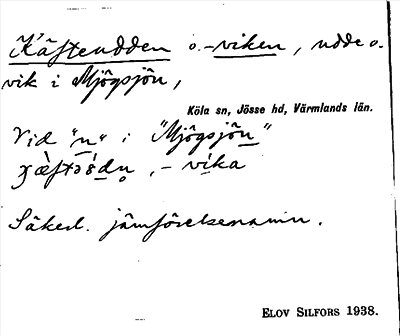 Käfteudden o. -viken, udde o.
vik i Mjögsjön,
Köla sn, Jösse hd, Värmlands län.
Vid "n" i "Mjögsjön"
, - vika
Säkerl. jämförelsenamn.
ELOV SILFORS 1938.